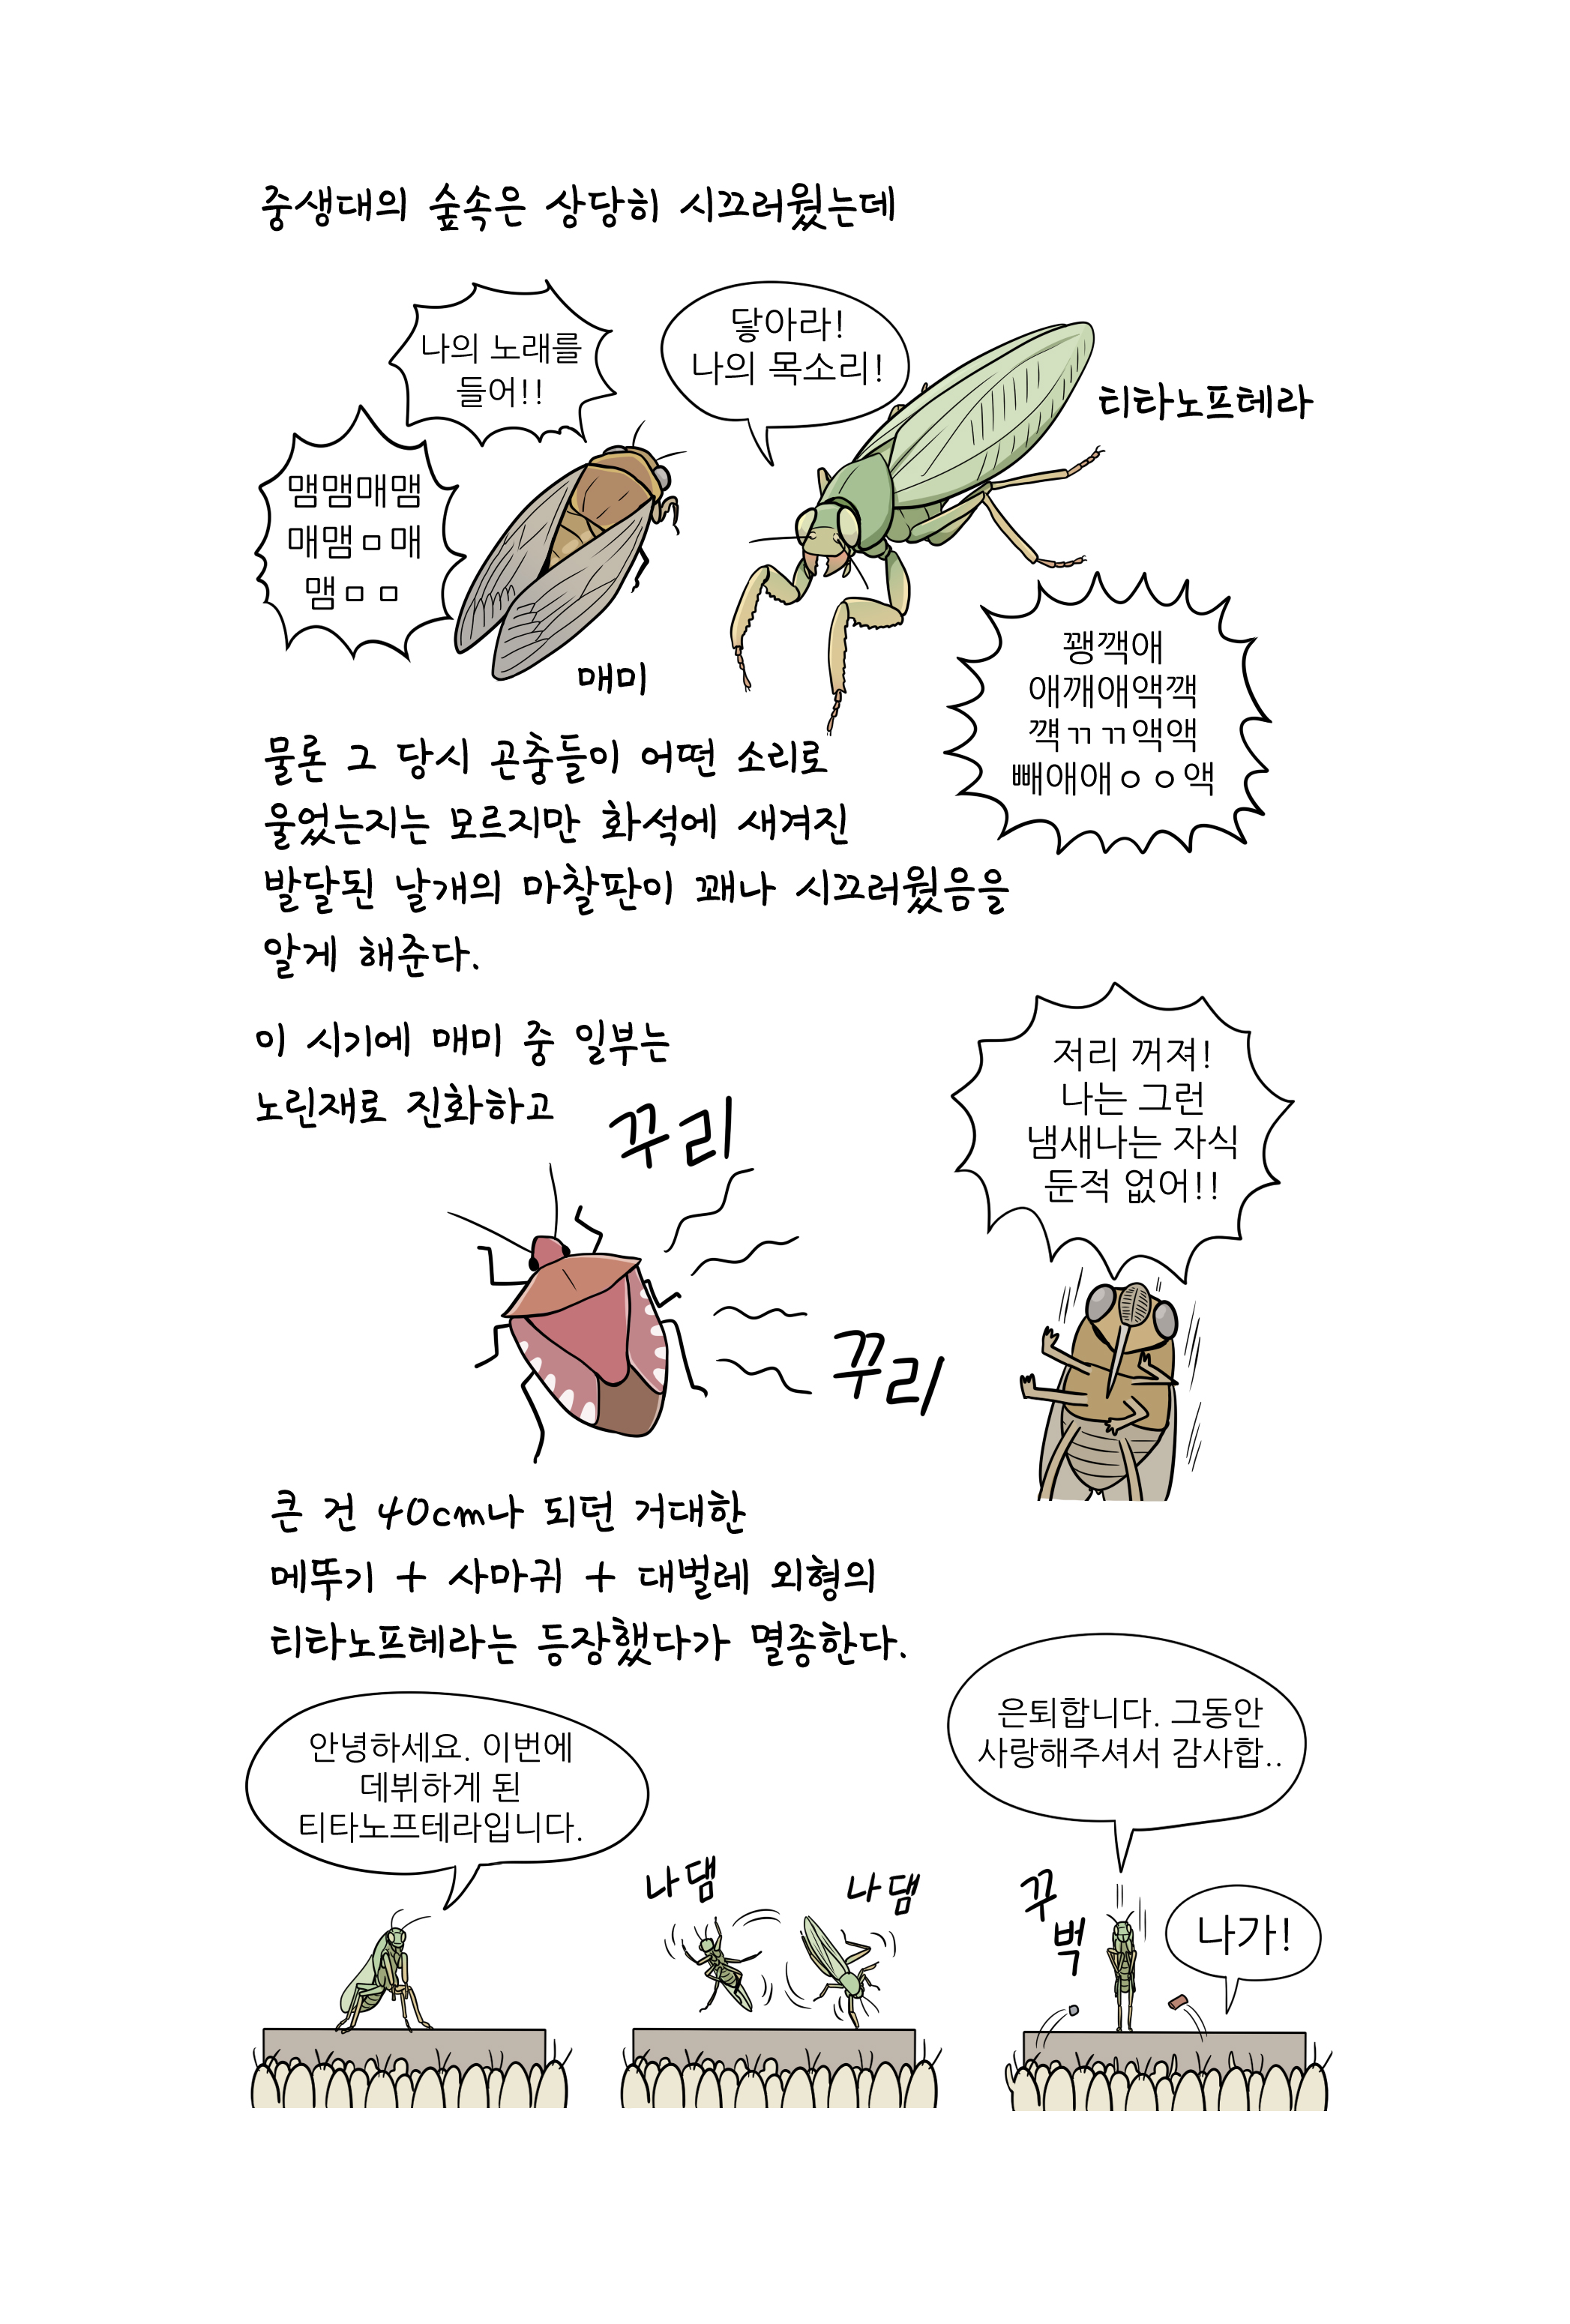 중생대의 숲속은 상당히 시끄러웠는데
나의 노래를
들어!!
닿아라!
나의 목소리!
티타노프테라
맴맴매맴
매맴ㅁ매
맴ㅁㅁ
매미
꽹깩애
애깨애액깩
꺡ㄲㄲ액액
빼애애ㅇㅇ액
물론 그 당시 곤충들이 어떤 소리로
울었는지는 모르지만 화석에 새겨진
발달된 날개의 마찰판이 꽤나 시끄러웠음을
알게 해준다.
이 시기에 매미 중 일부는
노린재로 진화하고
꾸리
꾸리
저리 꺼져!
나는 그런
냄새나는 자식
둔적 없어!!
큰 건 40cm나 되던 거대한
메뚜기 + 사마귀 + 대벌레 외형의
티타노프테라는 등장했다가 멸종한다.
안녕하세요. 이번에
데뷔하게 된
티타노프테라입니다.
나댐
나댐
은퇴합니다. 그동안
사랑해주셔서 감사합..
꾸
벅
나가!